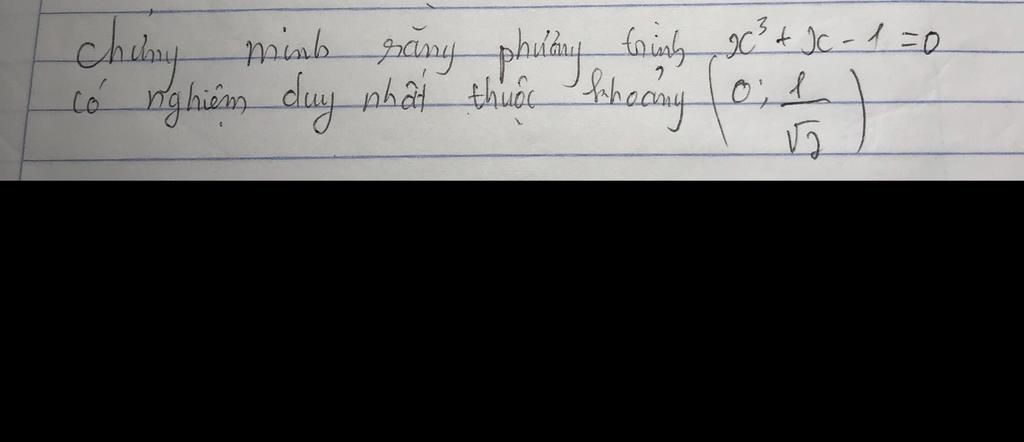 Chứng minh rằng phương trình x³ + x - 1 = 0
có nghiệm duy nhất thuộc khoảng (0; 1/√2)